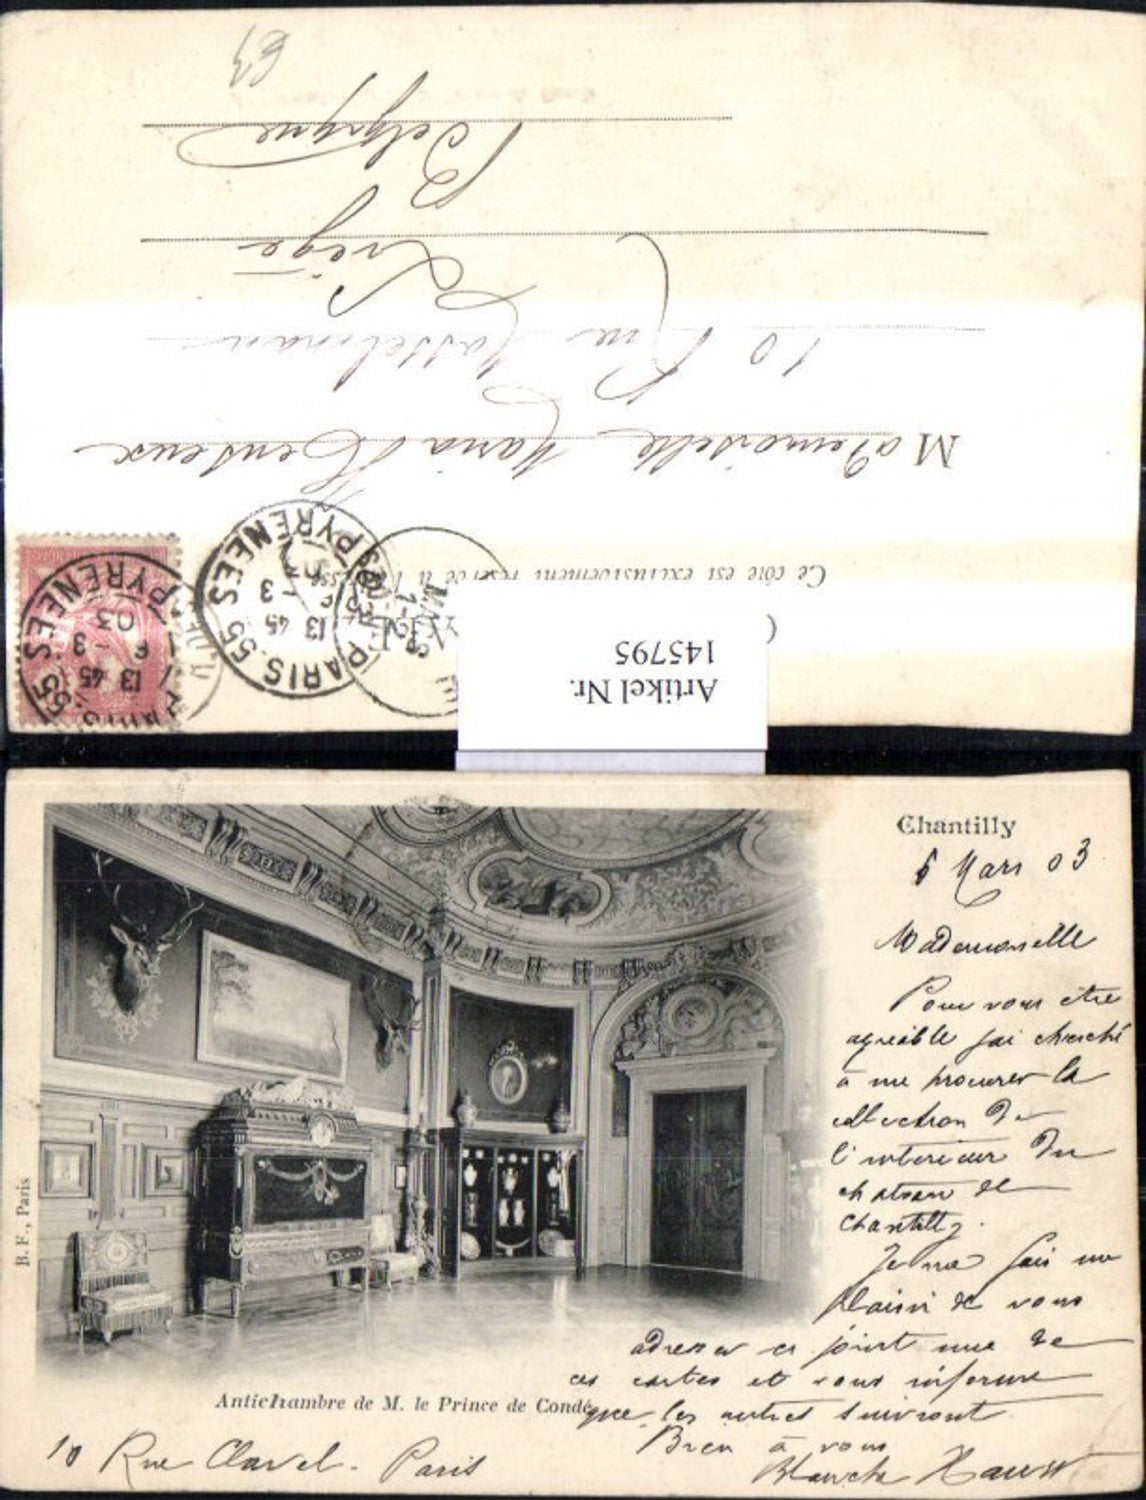 Ce côté est exclusivement réservé à l'adresse
Mademoiselle Maria Henseux
10 Rue Hasselmans
Liège
Belgique
PARIS-55
13 45
6 - 3
03
PYRENEES
PARIS-55
13 45
- 3
PYRENEES
Artikel Nr.
145795
Chantilly
6 Mars 03
Mademoiselle
Pour vous être
agréable j'ai cherché
à me procurer la
collection de
l'interieur du
chateau de
Chantilly.
Je me fais un
plaisir de vous
adresser ci joint une de
ces cartes et vous informe
que les autres suivront.
Bien à vous
Blanche
10 Rue Clavel. Paris
Antichambre de M. le Prince de Condé
B. F., Paris